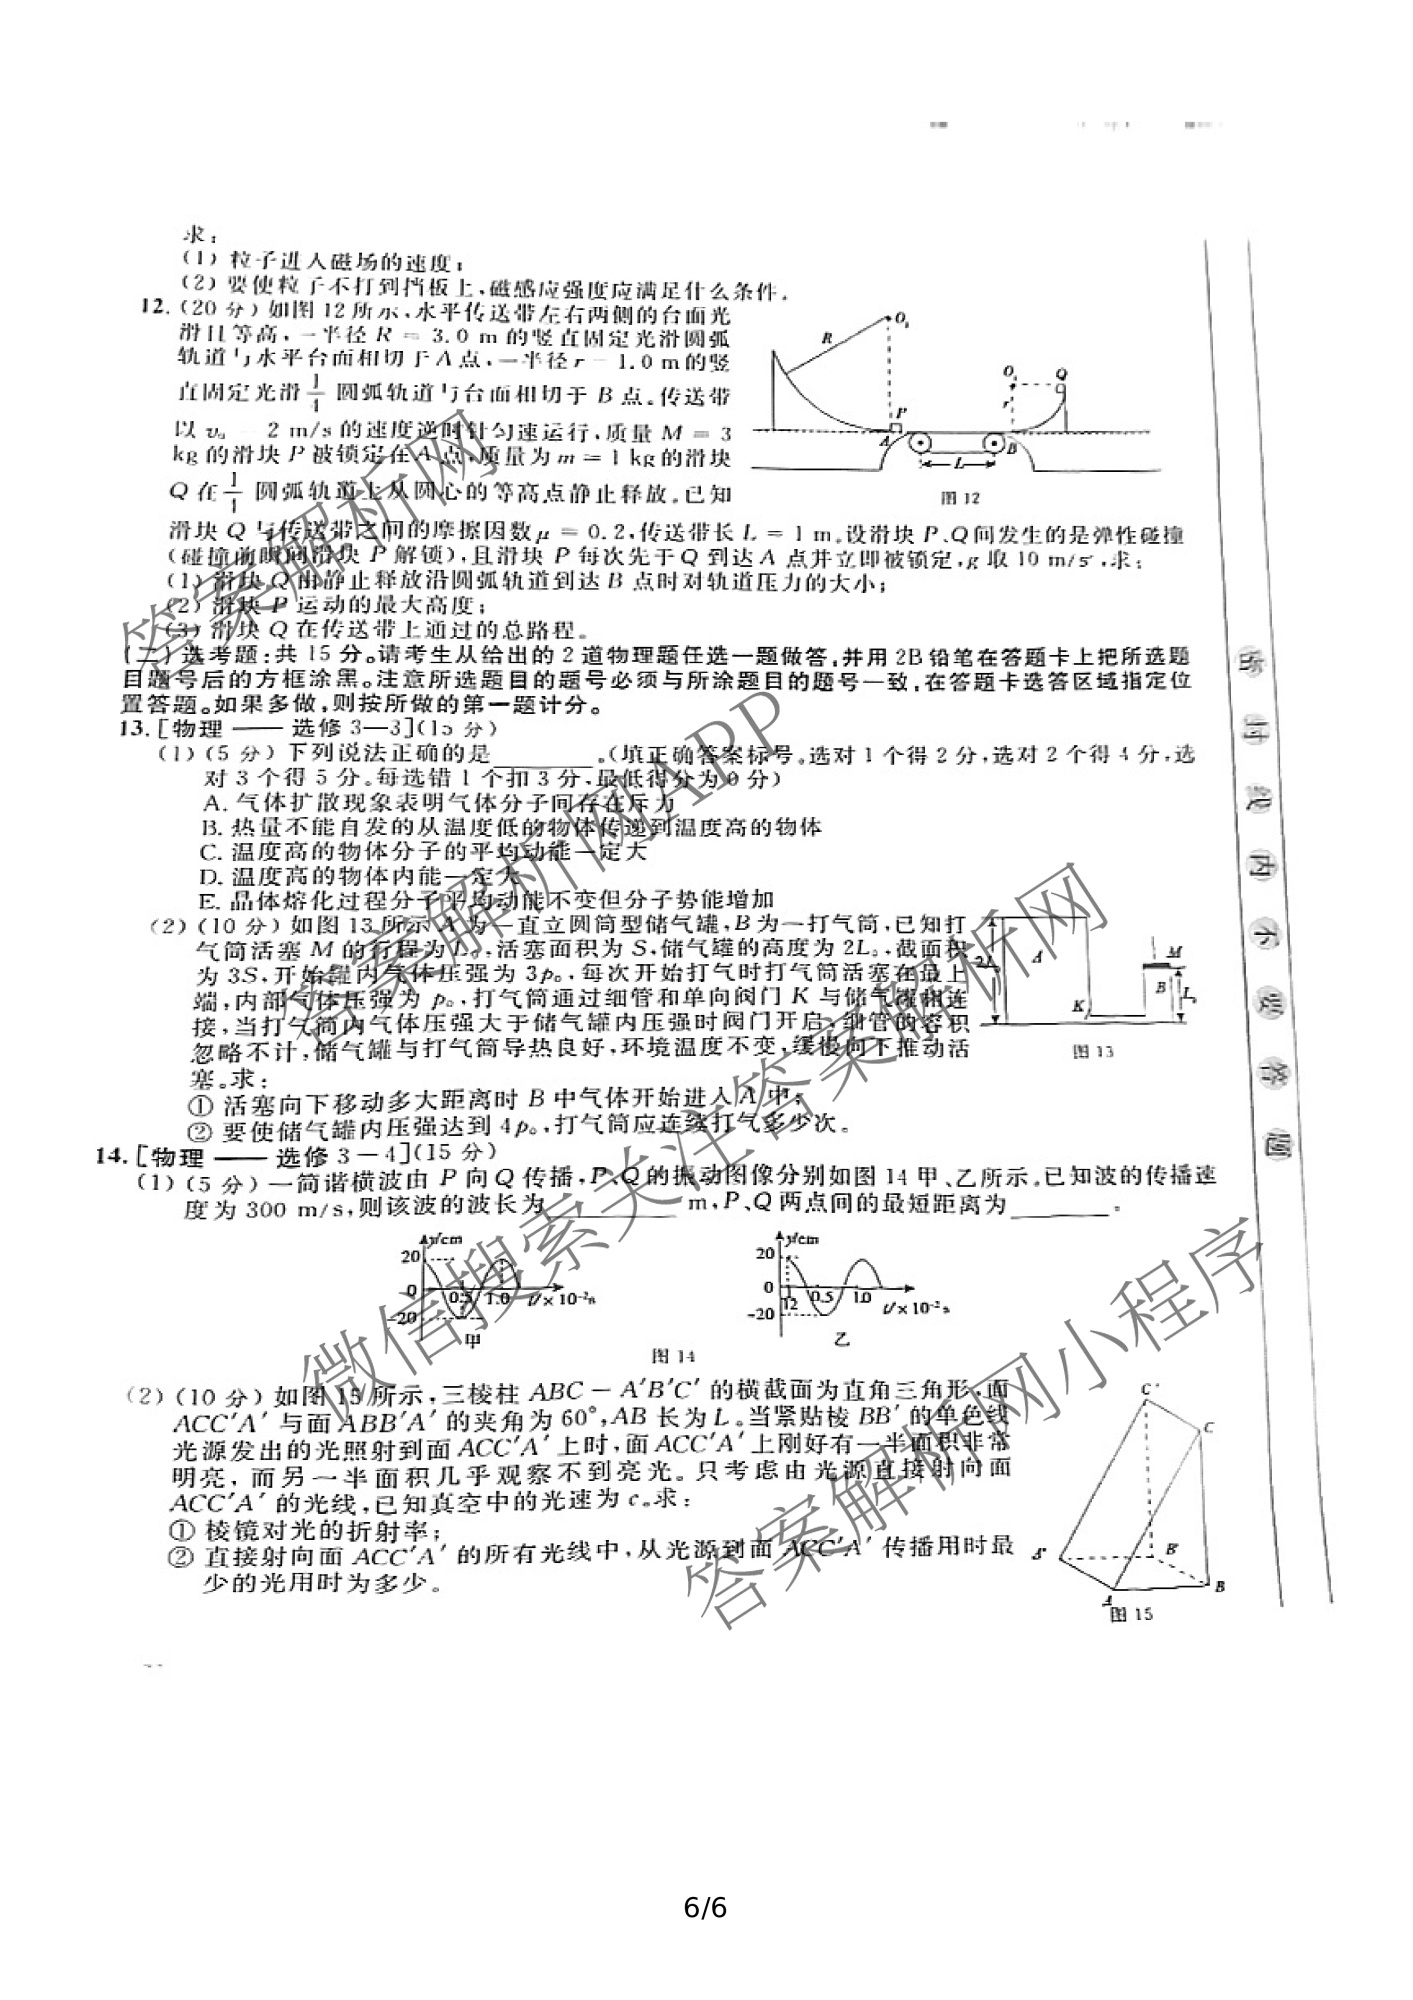 求:
(1) 粒子进入磁场的速度;
(2) 要使粒子不打到挡板上,磁感应强度应满足什么条件。
12. (20 分) 如图 12 所示,水平传送带左右两侧的台面光
滑且等高,一半径 R = 3.0 m 的竖直固定光滑圆弧
轨道与水平台面相切于 A 点,一半径 r = 1.0 m 的竖
直固定光滑 1/4 圆弧轨道与台面相切于 B 点。传送带
以 v₀ = 2 m/s 的速度逆时针匀速运行,质量 M = 3
kg 的滑块 P 被锁定在 A 点,质量为 m = 1 kg 的滑块
Q 在 1/4 圆弧轨道上从圆心的等高点静止释放。已知
滑块 Q 与传送带之间的摩擦因数 μ = 0.2,传送带长 L = 1 m。设滑块 P、Q 间发生的是弹性碰撞
(碰撞前瞬间滑块 P 解锁),且滑块 P 每次先于 Q 到达 A 点并立即被锁定,g 取 10 m/s²,求:
(1) 滑块 Q 由静止释放沿圆弧轨道到达 B 点时对轨道压力的大小;
(2) 滑块 P 运动的最大高度;
(3) 滑块 Q 在传送带上通过的总路程。
R
O₁
O₂
Q
r
P
A
B
L
图 12
(二) 选考题:共 15 分。请考生从给出的 2 道物理题任选一题做答,并用 2B 铅笔在答题卡上把所选题
目题号后的方框涂黑。注意所选题目的题号必须与所涂题目的题号一致,在答题卡选答区域指定位
置答题。如果多做,则按所做的第一题计分。
13. [物理 —— 选修 3—3](15 分)
(1) (5 分) 下列说法正确的是________。(填正确答案标号。选对 1 个得 2 分,选对 2 个得 4 分,选
对 3 个得 5 分。每选错 1 个扣 3 分,最低得分为 0 分)
A. 气体扩散现象表明气体分子间存在斥力
B. 热量不能自发的从温度低的物体传递到温度高的物体
C. 温度高的物体分子的平均动能一定大
D. 温度高的物体内能一定大
E. 晶体熔化过程分子平均动能不变但分子势能增加
(2) (10 分) 如图 13 所示 A 为一直立圆筒型储气罐,B 为一打气筒,已知打
气筒活塞 M 的行程为 L₀,活塞面积为 S,储气罐的高度为 2L₀,截面积
为 3S,开始罐内气体压强为 3p₀,每次开始打气时打气筒活塞在最上
端,内部气体压强为 p₀,打气筒通过细管和单向阀门 K 与储气罐相连
接,当打气筒内气体压强大于储气罐内压强时阀门开启,细管的容积
忽略不计,储气罐与打气筒导热良好,环境温度不变,缓慢向下推动活
塞。求:
① 活塞向下移动多大距离时 B 中气体开始进入 A 中;
② 要使储气罐内压强达到 4p₀,打气筒应连续打气多少次。
2L₀
A
K
M
B
L₀
图 13
14. [物理 —— 选修 3—4](15 分)
(1) (5 分) 一简谐横波由 P 向 Q 传播,P、Q 的振动图像分别如图 14 甲、乙所示。已知波的传播速
度为 300 m/s,则该波的波长为________ m,P、Q 两点间的最短距离为________。
y/cm
20
0
-20
0.5
1.0
t/×10⁻²s
甲
y/cm
20
0
-20
1/12
0.5
1.0
t/×10⁻²s
乙
图 14
(2) (10 分) 如图 15 所示,三棱柱 ABC − A′B′C′ 的横截面为直角三角形,面
ACC′A′ 与面 ABB′A′ 的夹角为 60°,AB 长为 L。当紧贴棱 BB′ 的单色线
光源发出的光照射到面 ACC′A′ 上时,面 ACC′A′ 上刚好有一半面积非常
明亮, 而另一半面积几乎观察不到亮光。只考虑由光源直接射向面
ACC′A′ 的光线,已知真空中的光速为 c。求:
① 棱镜对光的折射率;
② 直接射向面 ACC′A′ 的所有光线中,从光源到面 ACC′A′ 传播用时最
少的光用时为多少。
C′
C
A′
B′
A
B
图 15
密 封 线 内 不 要 答 题
答案解析网
答案解析网APP
微信搜索关注答案解析网
答案解析网小程序
6/6